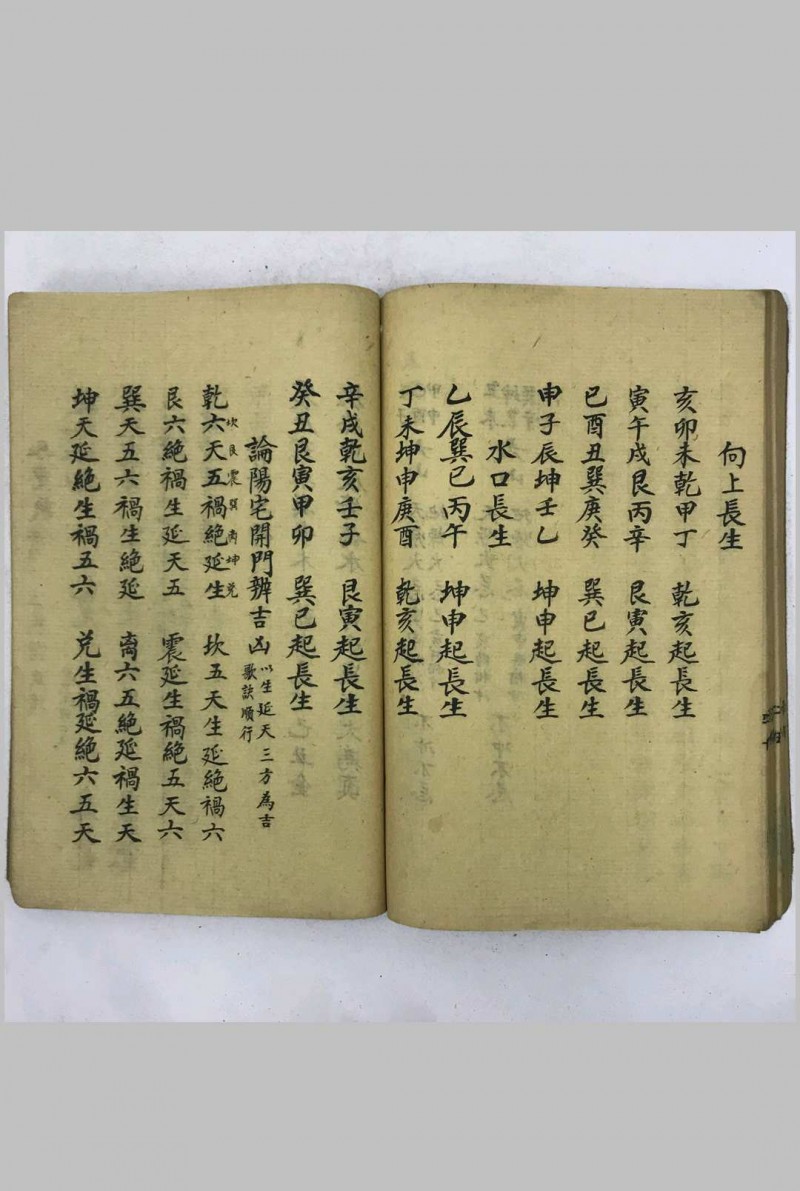 向上長生
亥卯未乾甲丁 乾亥起長生
寅午戌艮丙辛 艮寅起長生
巳酉丑巽庚癸 巽巳起長生
申子辰坤壬乙 坤申起長生
水口長生
乙辰巽巳丙午 坤申起長生
丁未坤申庚酉 乾亥起長生
辛戌乾亥壬子 艮寅起長生
癸丑艮寅甲卯 巽巳起長生
論陽宅開門辨吉凶 以生延天三方為吉
歌訣順行
坎艮震巽离坤兌
乾六天五禍絶延生 坎五天生延絶禍六
艮六絶禍生延天五 震延生禍絶五天六
巽天五六禍生絶延 离六五絶延禍生天
坤天延絶生禍五六 兌生禍延絶六五天